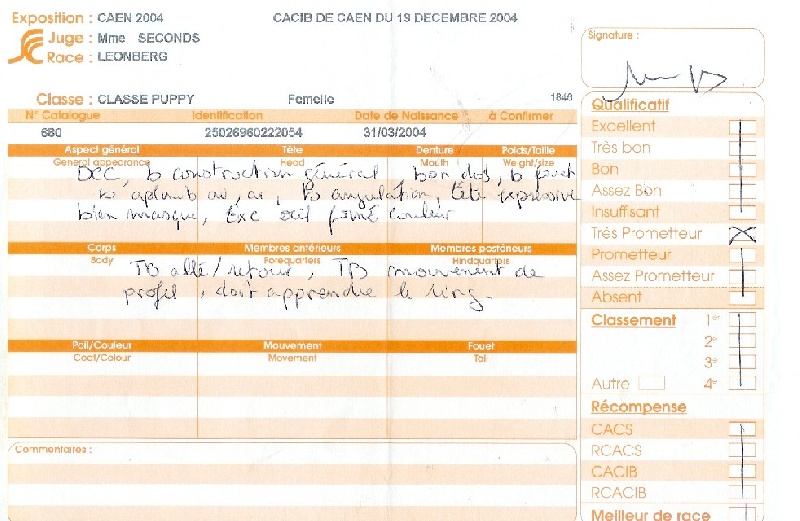 Exposition : CAEN 2004
CACIB DE CAEN DU 19 DECEMBRE 2004
Juge : Mme SECONDS
Race : LEONBERG
Signature :
Classe : CLASSE PUPPY Femelle 1848
N° Catalogue Identification Date de Naissance à Confirmer
680 25026960222054 31/03/2004
Aspect général Tête Denture Poids/Taille
General appearance Head Mouth Weight/size
DCC, b construction général, bon dos, b fouet
b aplomb av, ar, b angulation, tête expressive
bien masque, Exc œil foncé couleur
Corps Membres antérieurs Membres postérieurs
Body Forequarters Hindquarters
TB allé/retour, TB mouvement de
profil, doit apprendre le ring.
Poil/Couleur Mouvement Fouet
Coat/Colour Movement Tail
Commentaires :
Qualificatif
Excellent
Très bon
Bon
Assez Bon
Insuffisant
Très Prometteur
Prometteur
Assez Prometteur
Absent
Classement 1er
2e
3e
Autre 4e
Récompense
CACS
RCACS
CACIB
RCACIB
Meilleur de race